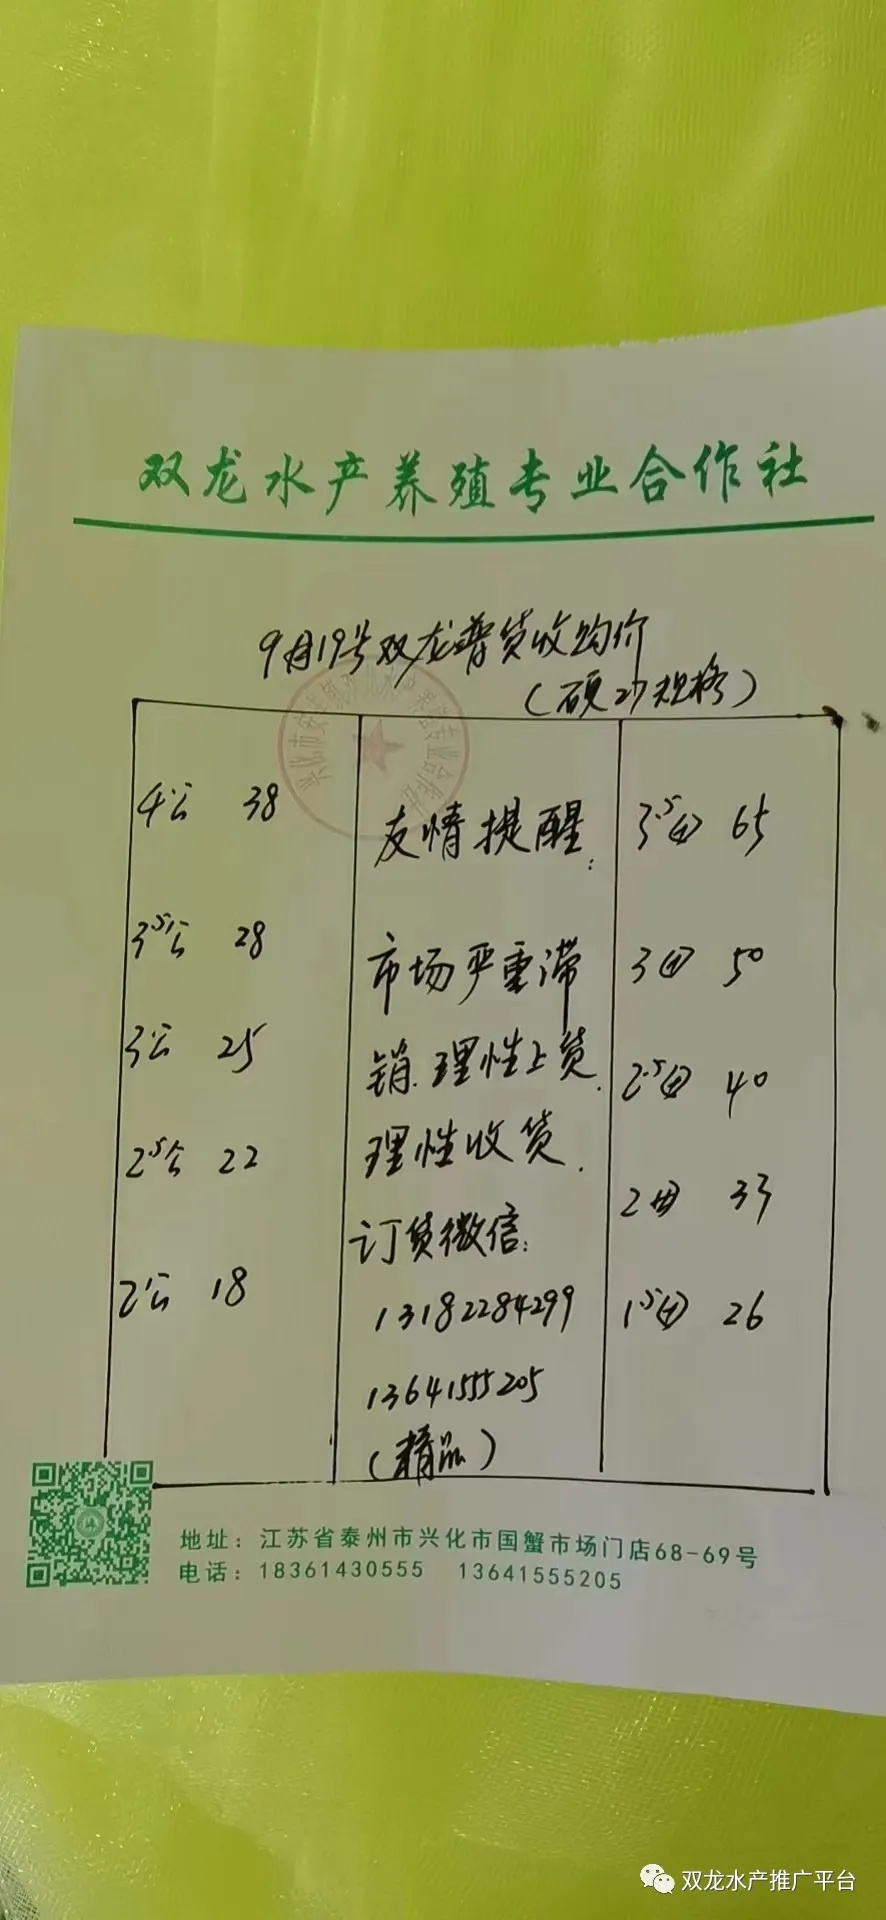 双龙水产养殖专业合作社
9月19号双龙普货收购价
(硕27规格)
4公 38
3⁵公 28
3公 25
2⁵公 22
2公 18
友情提醒:
市场严重滞
销.理性上货.
理性收货.
订货微信:
13182284299
13641555205
(精品)
3⁵母 65
3母 50
2⁵母 40
2母 33
1⁵母 26
地址:江苏省泰州市兴化市国蟹市场门店68-69号
电话:18361430555 13641555205
双龙水产推广平台